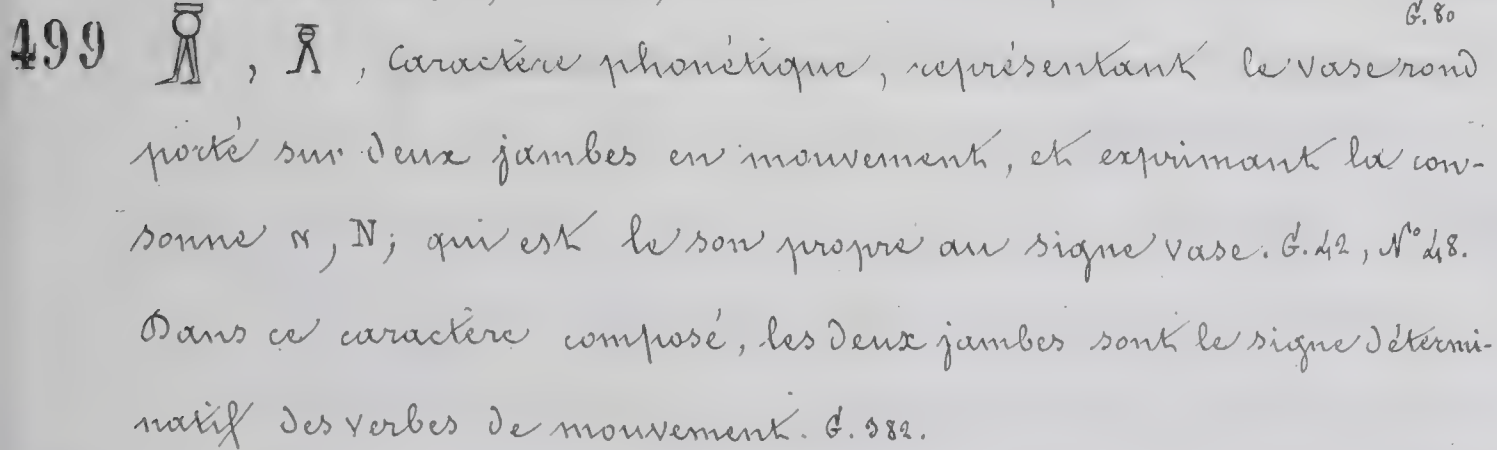 G. 80
499 𓏎, 𓏎, Caractère phonétique, représentant le vase rond
porté sur deux jambes en mouvement, et exprimant la con-
sonne ⲛ, N; qui est le son propre au signe vase. G. 42, N° 48.
Dans ce caractère composé, les deux jambes sont le signe détermi-
natif des verbes de mouvement. G. 382.